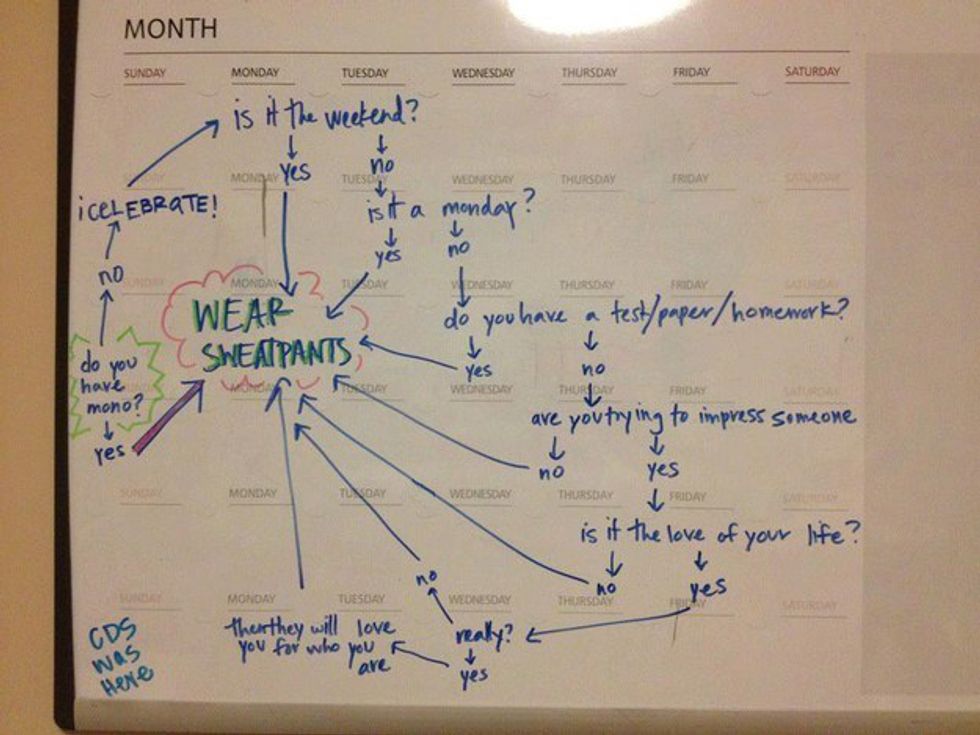 MONTH
SUNDAY MONDAY TUESDAY WEDNESDAY THURSDAY FRIDAY SATURDAY
is it the weekend?
yes no
SUNDAY MONDAY TUESDAY WEDNESDAY THURSDAY FRIDAY SATURDAY
¡CELEBRATE!
is it a monday?
yes no
no
SUNDAY MONDAY TUESDAY WEDNESDAY THURSDAY FRIDAY SATURDAY
WEAR
SWEATPANTS
do you have a test/paper/homework?
yes no
do you
have
mono?
yes
MONDAY TUESDAY WEDNESDAY THURSDAY FRIDAY SATURDAY
are you trying to impress someone
no yes
SUNDAY MONDAY TUESDAY WEDNESDAY THURSDAY FRIDAY SATURDAY
is it the love of your life?
no yes
SUNDAY MONDAY TUESDAY WEDNESDAY THURSDAY FRIDAY SATURDAY
no
really?
yes
then they will love
you for who you
are
CDS
was
Here